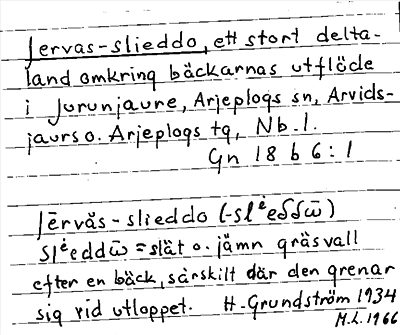 Jervas-slieddo, ett stort delta-
land omkring bäckarnas utflöde
i Jurunjaure, Arjeplogs sn, Arvids-
jaurs o. Arjeplogs tg, Nb. l.
Gn 18 b 6:1
Jērvăs-slieddo (-slᵉ̇eδδω̄)
slᵉ̇eddω̄ = slät o. jämn gräsvall
efter en bäck, särskilt där den grenar
sig vid utloppet. H. Grundström 1934
M.L. 1966